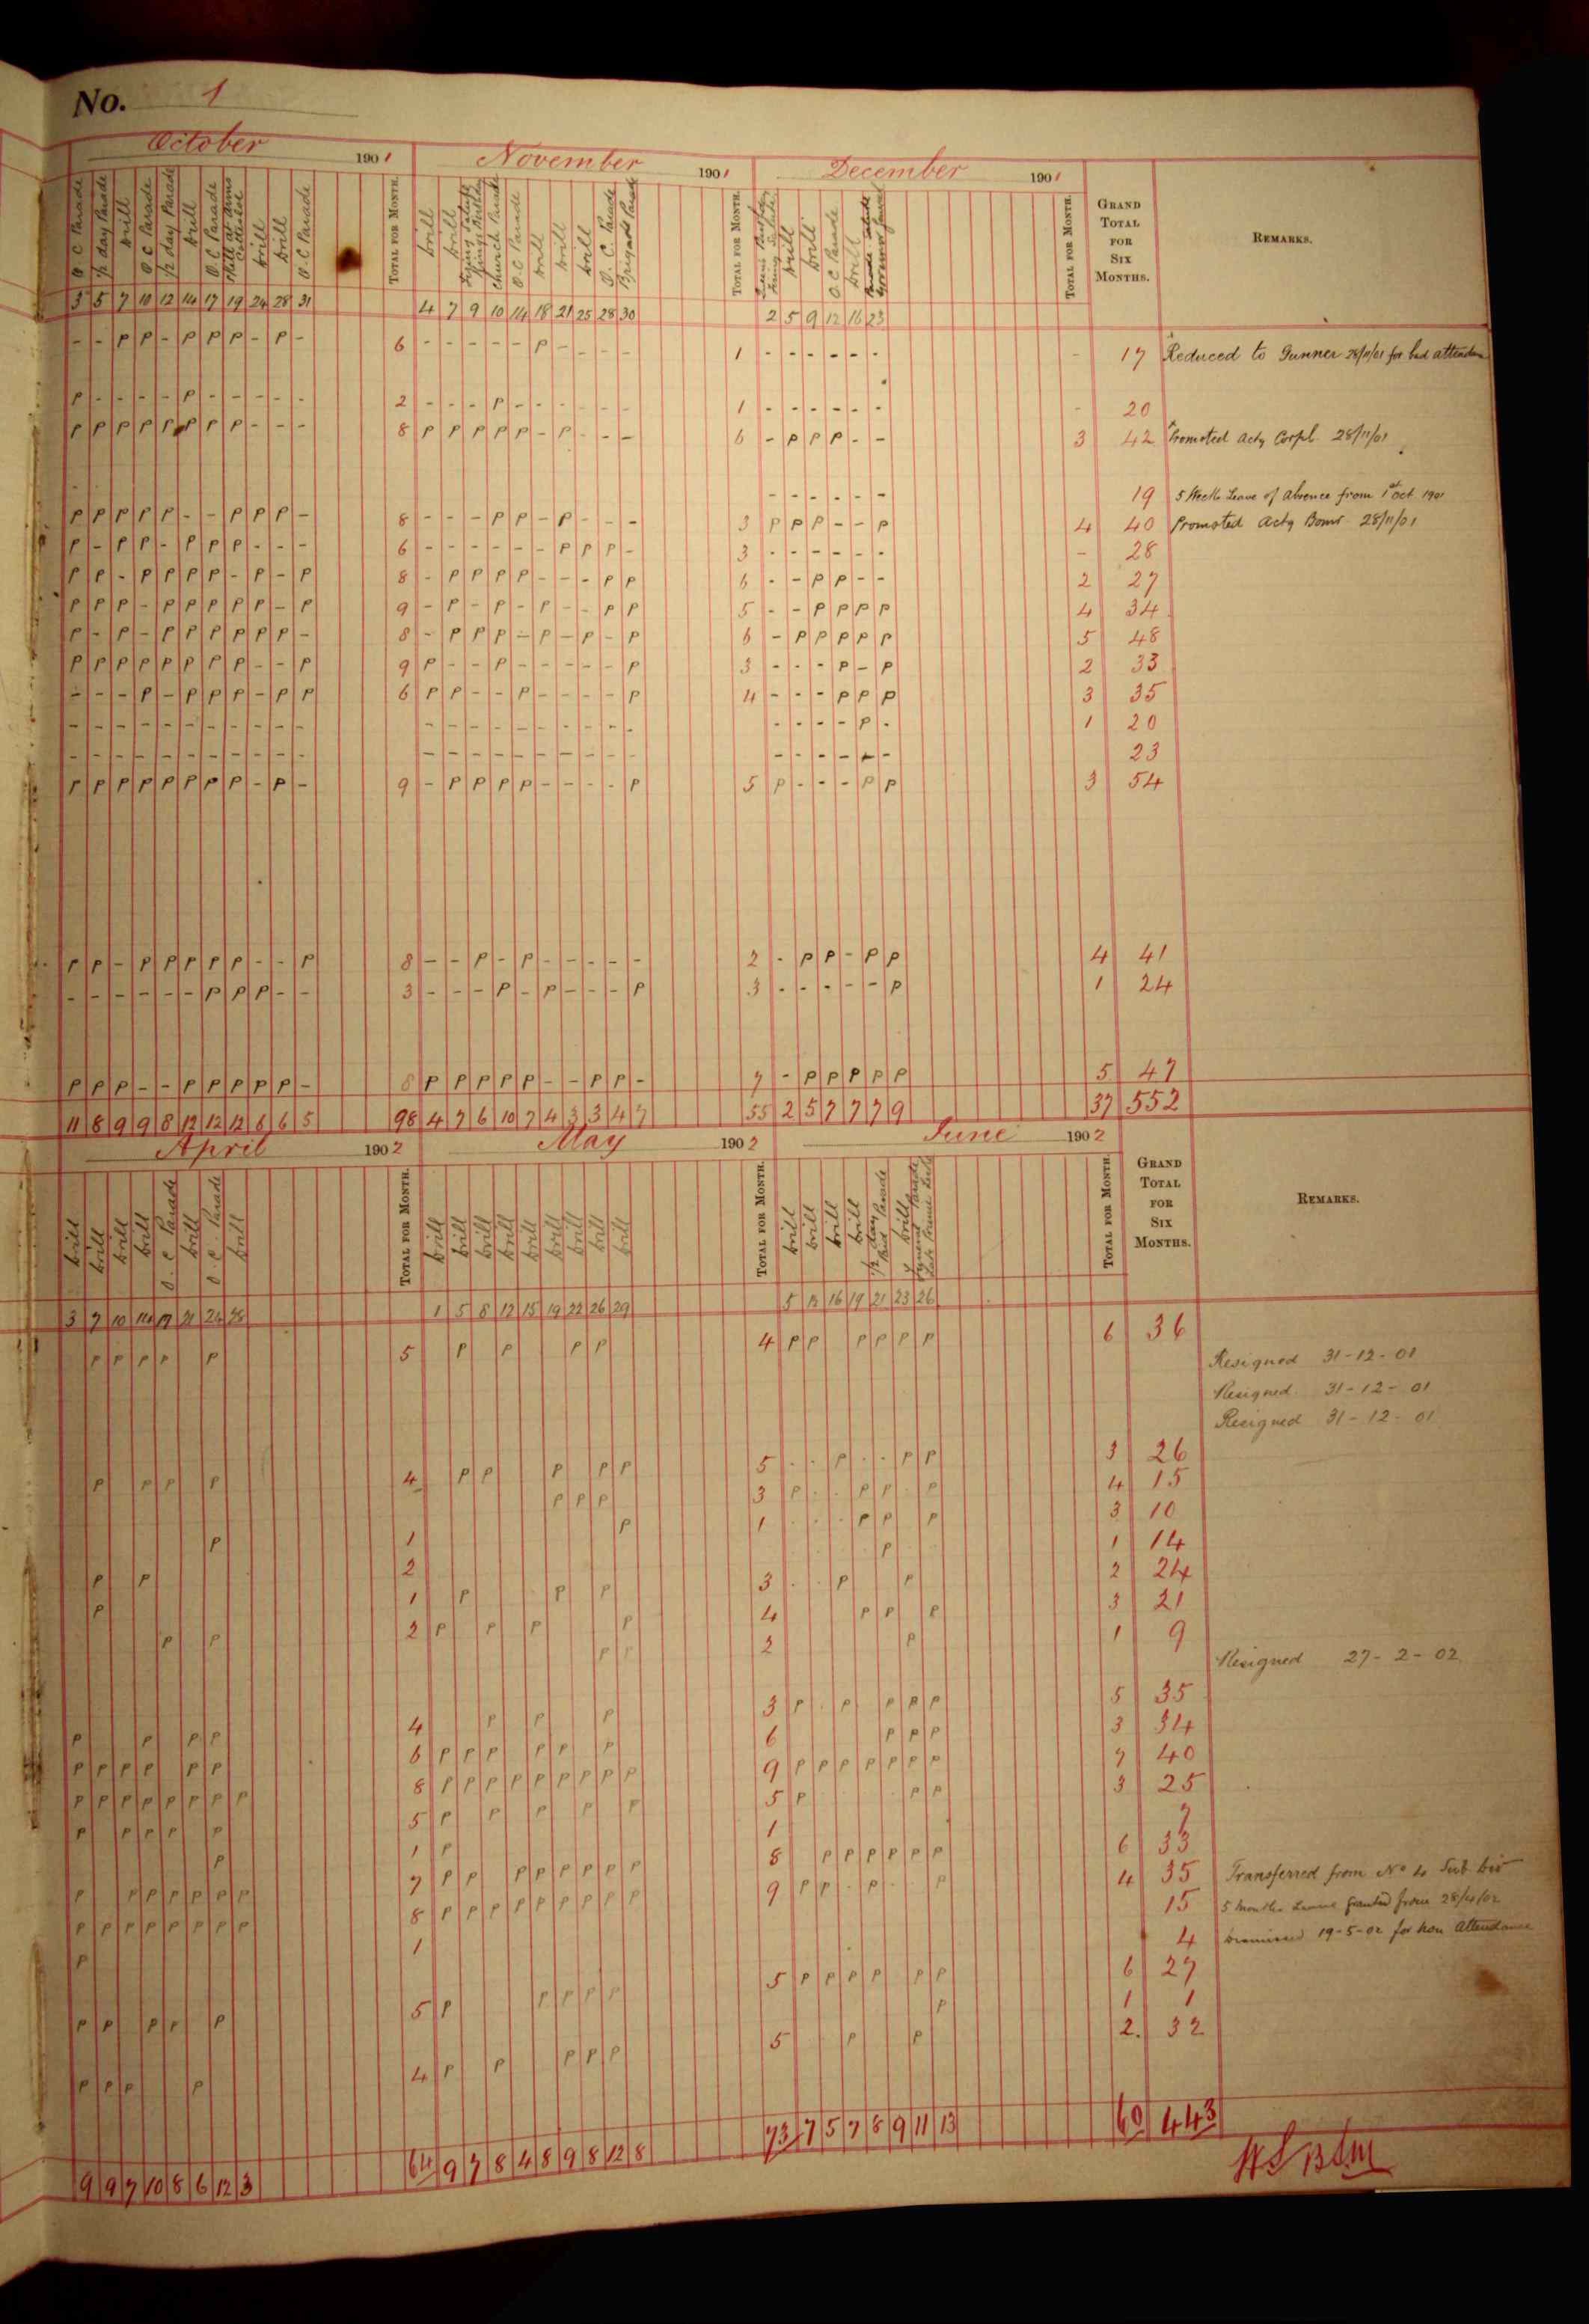 No. 1
October 1901 November 1901 December 1901
O C Parade
1/2 day Parade
Drill
O C Parade
1/2 day Parade
Drill
O.C Parade
Skill at Arms
Drill
Drill
O.C Parade
TOTAL FOR MONTH.
Drill
Drill
Firing Salute Kings Birthday
Church Parade
O.C Parade
Drill
Drill
Drill
O. C. Parade
Brigade Parade
TOTAL FOR MONTH.
Drill
Drill
O.C Parade
Drill
TOTAL FOR MONTH.
GRAND
TOTAL
FOR
SIX
MONTHS.
REMARKS.
3 5 7 10 12 14 17 19 24 28 31 4 7 9 10 14 18 21 25 28 30 2 5 9 12 16 23
- - P P - P P P - P - 6 - - - - - P - - - - 1 - - - - - - - 17 Reduced to Gunner 28/11/01 for bad attendance
P - - - - P - - - - - 2 - - - P - - - - - - 1 - - - - - - - 20
P P P P P P P P - - - 8 P P P P P - P - - - 6 - P P P - - 3 42 Promoted Actg Corpl 28/11/01
- - - - - - 19 5 Weeks Leave of absence from 1st Oct 1901
P P P P P - - P P P - 8 - - - P P - P - - - 3 P P P - - P 4 40 Promoted Actg Bomr 28/11/01
P - P P - P P P - - - 6 - - - - - - P P P - 3 - - - - - - - 28
P P - P P P P - P - P 8 - P P P P - - - P P 6 - - P P - - 2 27
P P P - P P P P P - P 9 - P - P - P - - P P 5 - - P P P P 4 34
P - P - P P P P P P - 8 - P P P - P - P - P 6 - P P P P P 5 48
P P P P P P P P - - P 9 P - - P - - - - - P 3 - - - P - P 2 33
- - - P - P P P - P P 6 P P - - P - - - - P 4 - - - P P P 3 35
- - - - - - - - - - - - - - - - - - - - - - - - - P - 1 20
- - - - - - - - - - - - - - - - - - - - - - - - - - - 23
P P P P P P P P - P - 9 - P P P P - - - - P 5 P - - - P P 3 54
P P - P P P P P - - P 8 - - P - P - - - - - 2 - P P - P P 4 41
- - - - - - P P P - - 3 - - - P - P - - - P 3 - - - - - P 1 24
P P P - - P P P P P - 8 P P P P P - - P P - 7 - P P P P P 5 47
11 8 9 9 8 12 12 12 6 6 5 98 4 7 6 10 7 4 3 3 4 7 55 2 5 7 7 7 9 37 552
April 1902 May 1902 June 1902
Drill
Drill
Drill
Drill
O. C Parade
Drill
O. C. Parade
Drill
TOTAL FOR MONTH.
Drill
Drill
Drill
Drill
Drill
Drill
Drill
Drill
Drill
TOTAL FOR MONTH.
Drill
Drill
Drill
Drill
1/2 day Paid Parade
Drill
TOTAL FOR MONTH.
GRAND
TOTAL
FOR
SIX
MONTHS.
REMARKS.
3 7 10 14 17 21 24 28 1 5 8 12 15 19 22 26 29 5 12 16 19 21 23 26
P P P P P 5 P P P P 4 P P P P P P 6 36
Resigned 31-12-01
Resigned 31-12-01
Resigned 31-12-01
P P P P 4 P P P P P 5 P P P 3 26
P P P 3 P P P P 4 15
P 1 P 1 P P P 3 10
P 1 14
P P 2 P P P 3 P P 2 24
P 1 P P P P 4 P P P 3 21
P P 2 P P 2 P 1 9
Resigned 27-2-02
P P P P 4 P P P 3 P P P P P 5 35
P P P P P P 6 P P P P P P 6 P P P 3 34
P P P P P P P P 8 P P P P P P P P P 9 P P P P P P P 7 40
P P P P P 5 P P P P P 5 P P P 3 25
P 1 P 1 7
P P P P P P P 7 P P P P P P P P 8 P P P P P P 6 33
P P P P P P P P 8 P P P P P P P P P 9 P P P P 4 35 Transferred from No 4 Sub Div
P 1 15 5 Months Leave Granted from 28/4/02
4 Dismissed 19-5-02 for Non Attendance
P P P P P 5 P P P P P 5 P P P P P P 6 27
P 1 1
P P P P 4 P P P P P 5 P P 2 32
9 9 7 10 8 6 12 3 64 9 7 8 4 8 9 8 12 8 73 7 5 7 8 9 11 13 60 443